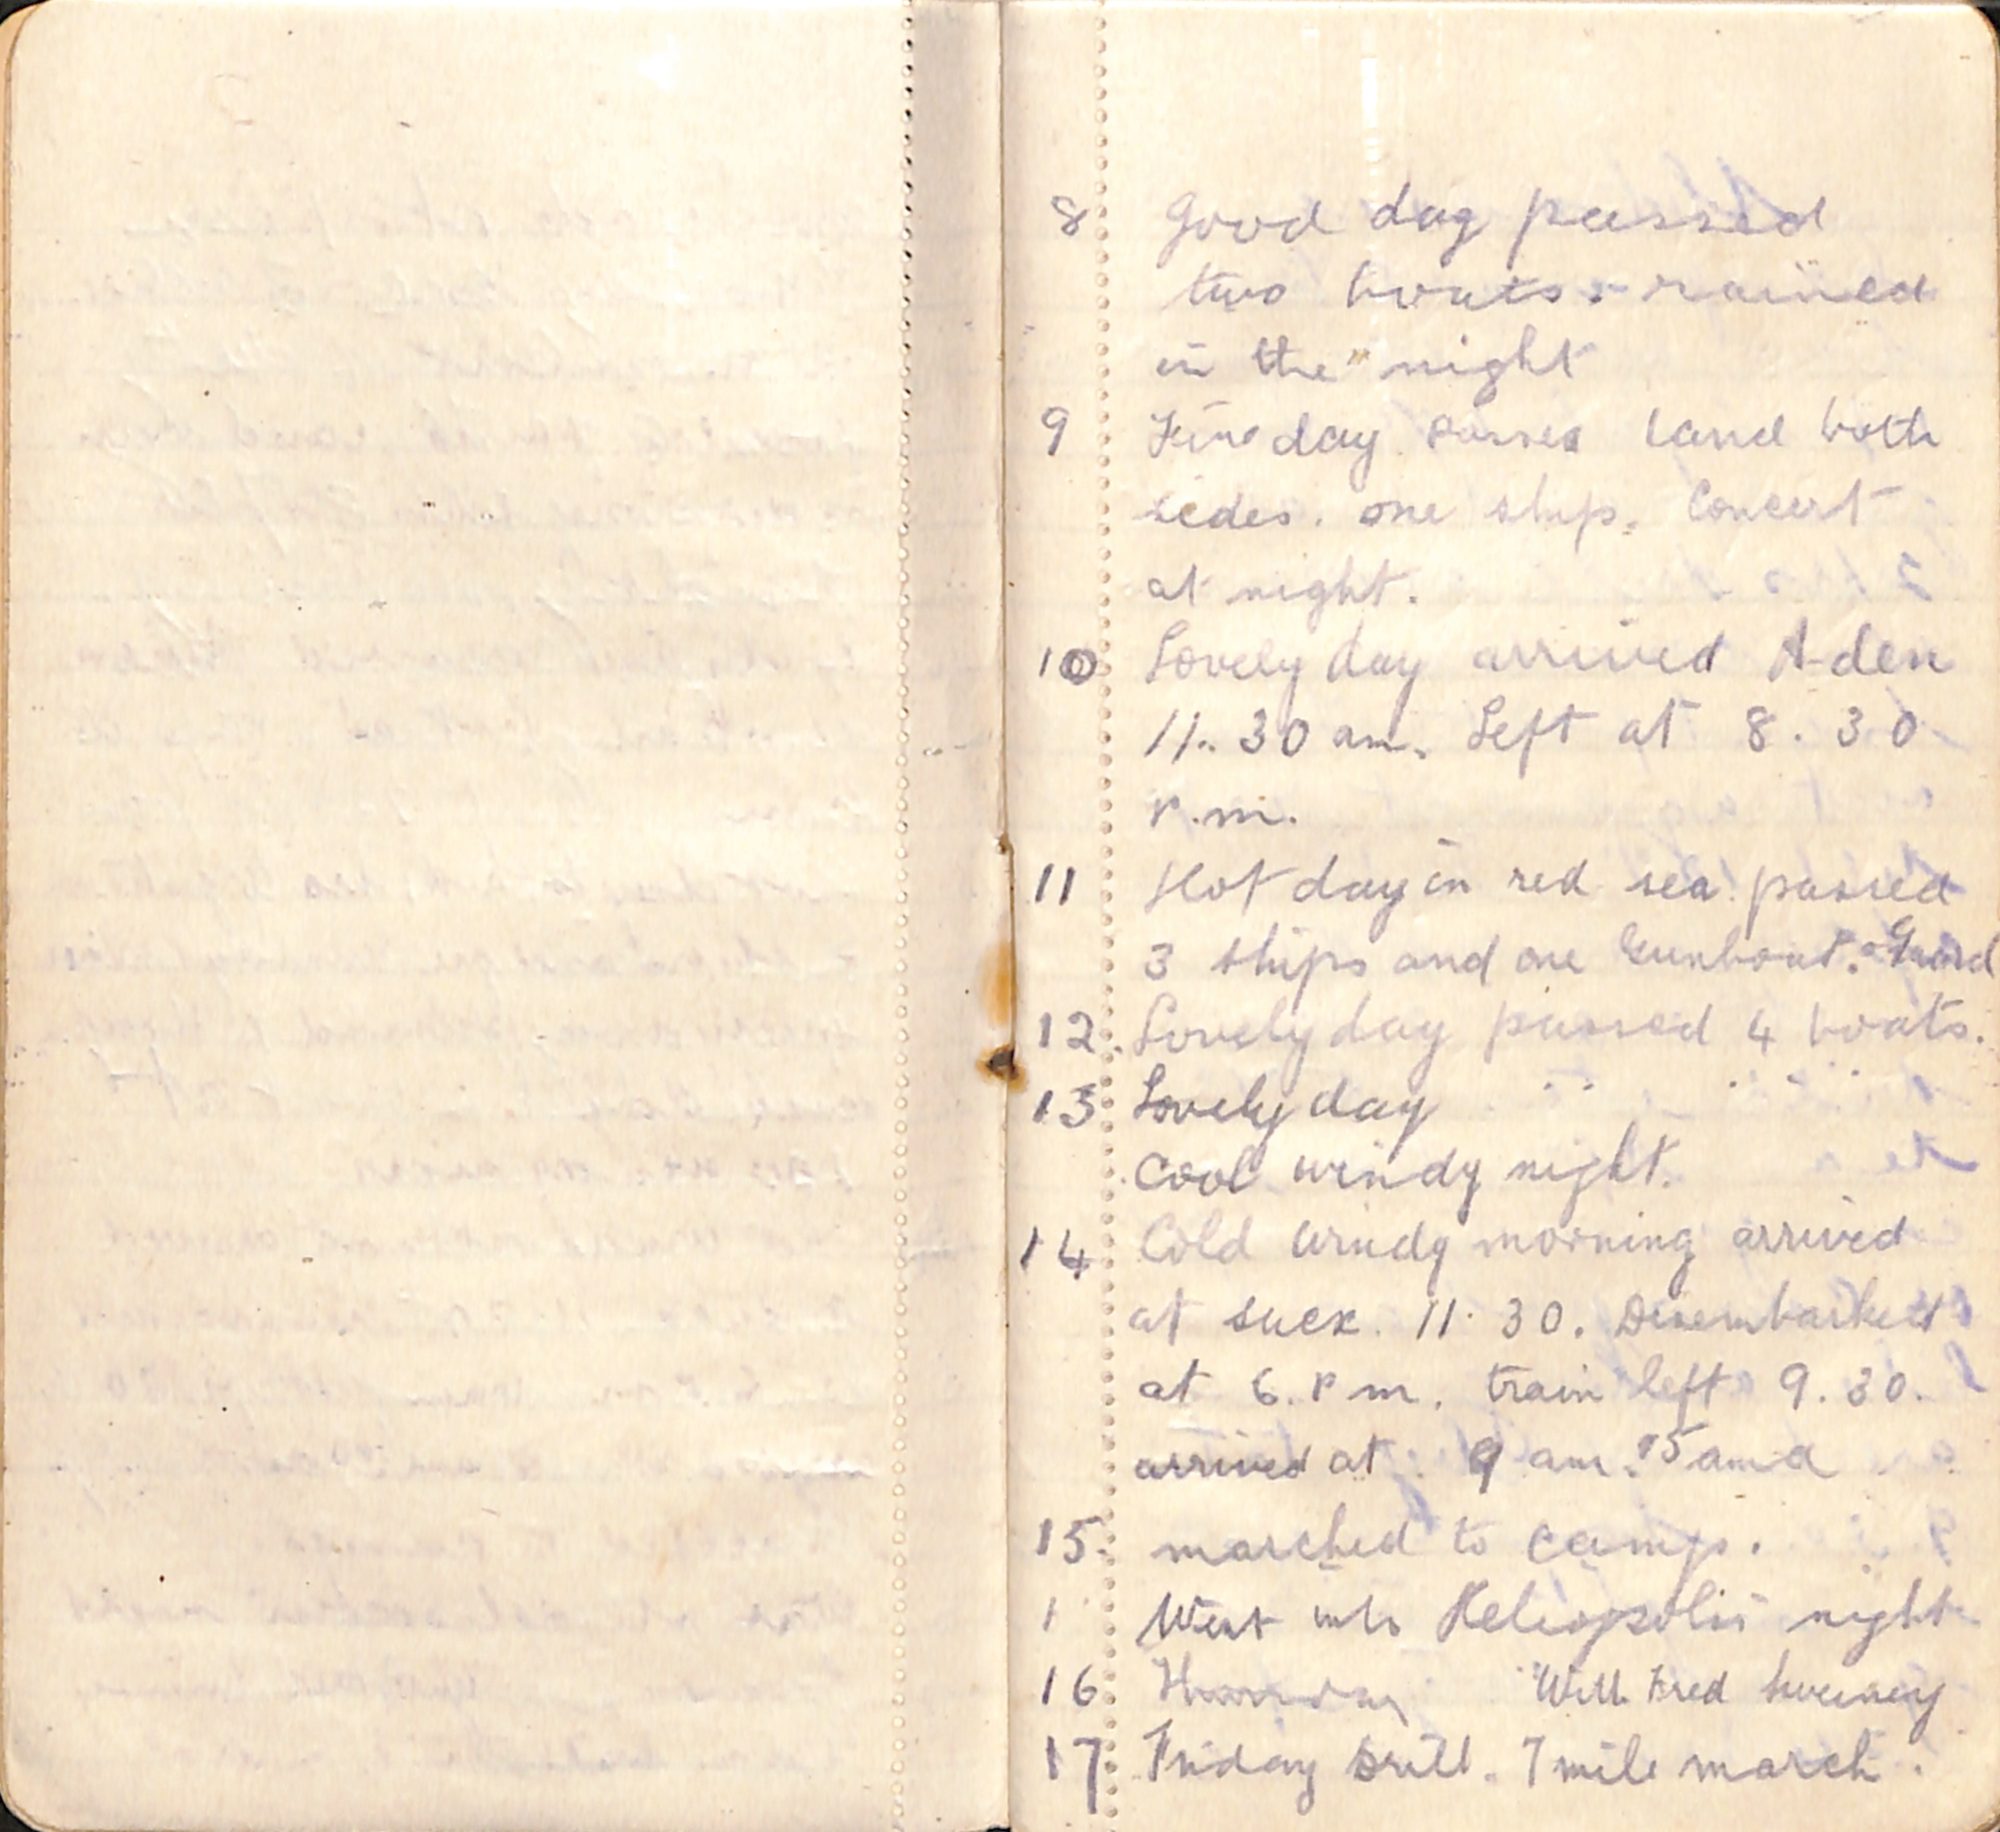 8 Good day passed
two boats - rained
in the night
9 Fine day passed land both
sides. one ship. Concert
at night.
10 Lovely day arrived Aden
11.30 am. Left at 8.30
P.m.
11 Hot day in red sea passed
3 ships and one Gunboat. Guard
12. Lovely day passed 4 boats.
13 Lovely day
Cool windy night.
14 Cold windy morning arrived
at suez. 11.30. Disembarked
at 6. P m. train left 9.30.
arrived at 9 am. 15 and
15. marched to camp.
1 Went into Heliopolis night
16 Will Fred Sweeney
17 Friday Drill. 7 mile march.